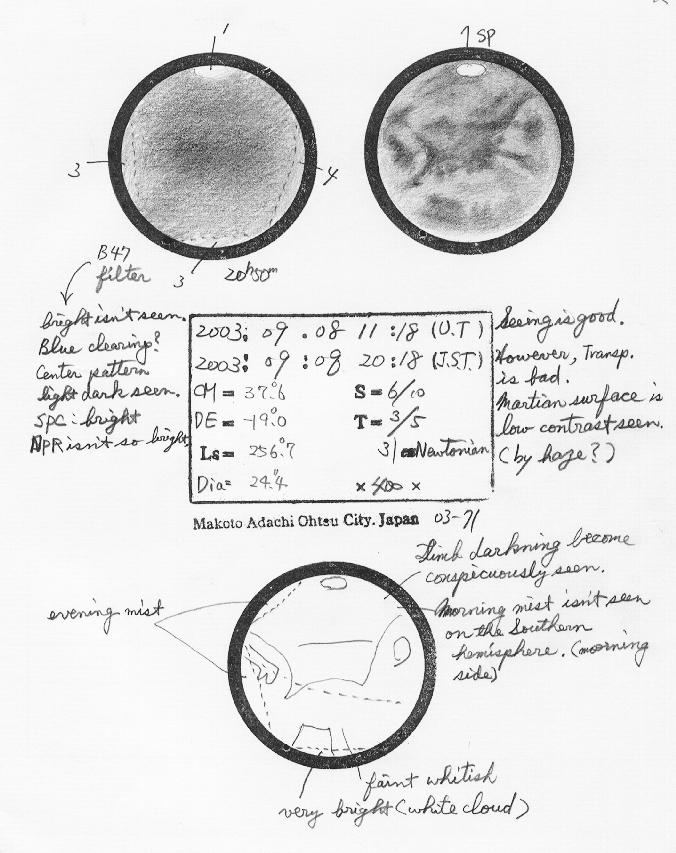 1
3
4
3
20h50m
SP
B47
filter
bright isn't seen.
Blue clearing?
Center pattern
light dark seen.
SPC : bright
NPR isn't so bright
2003: 09 . 08 11 :18 (U.T)
2003: 09 : 08 20 :18 (J.S.T)
CM = 37.°6 S = 6/10
DE = -19.°0 T = 3/5
Ls = 256.°7 31 cm Newtonian
Dia= 24.″4 × 400 ×
Seeing is good.
However, Transp.
is bad.
Martian surface is
low contrast seen.
(by haze?)
Makoto Adachi Ohtsu City. Japan 03-71
Limb darkning become
conspecuously seen.
evening mist
Morning mist isn't seen
on the Southern
hemisphere. (morning
side)
faint whitish
very bright (white cloud)